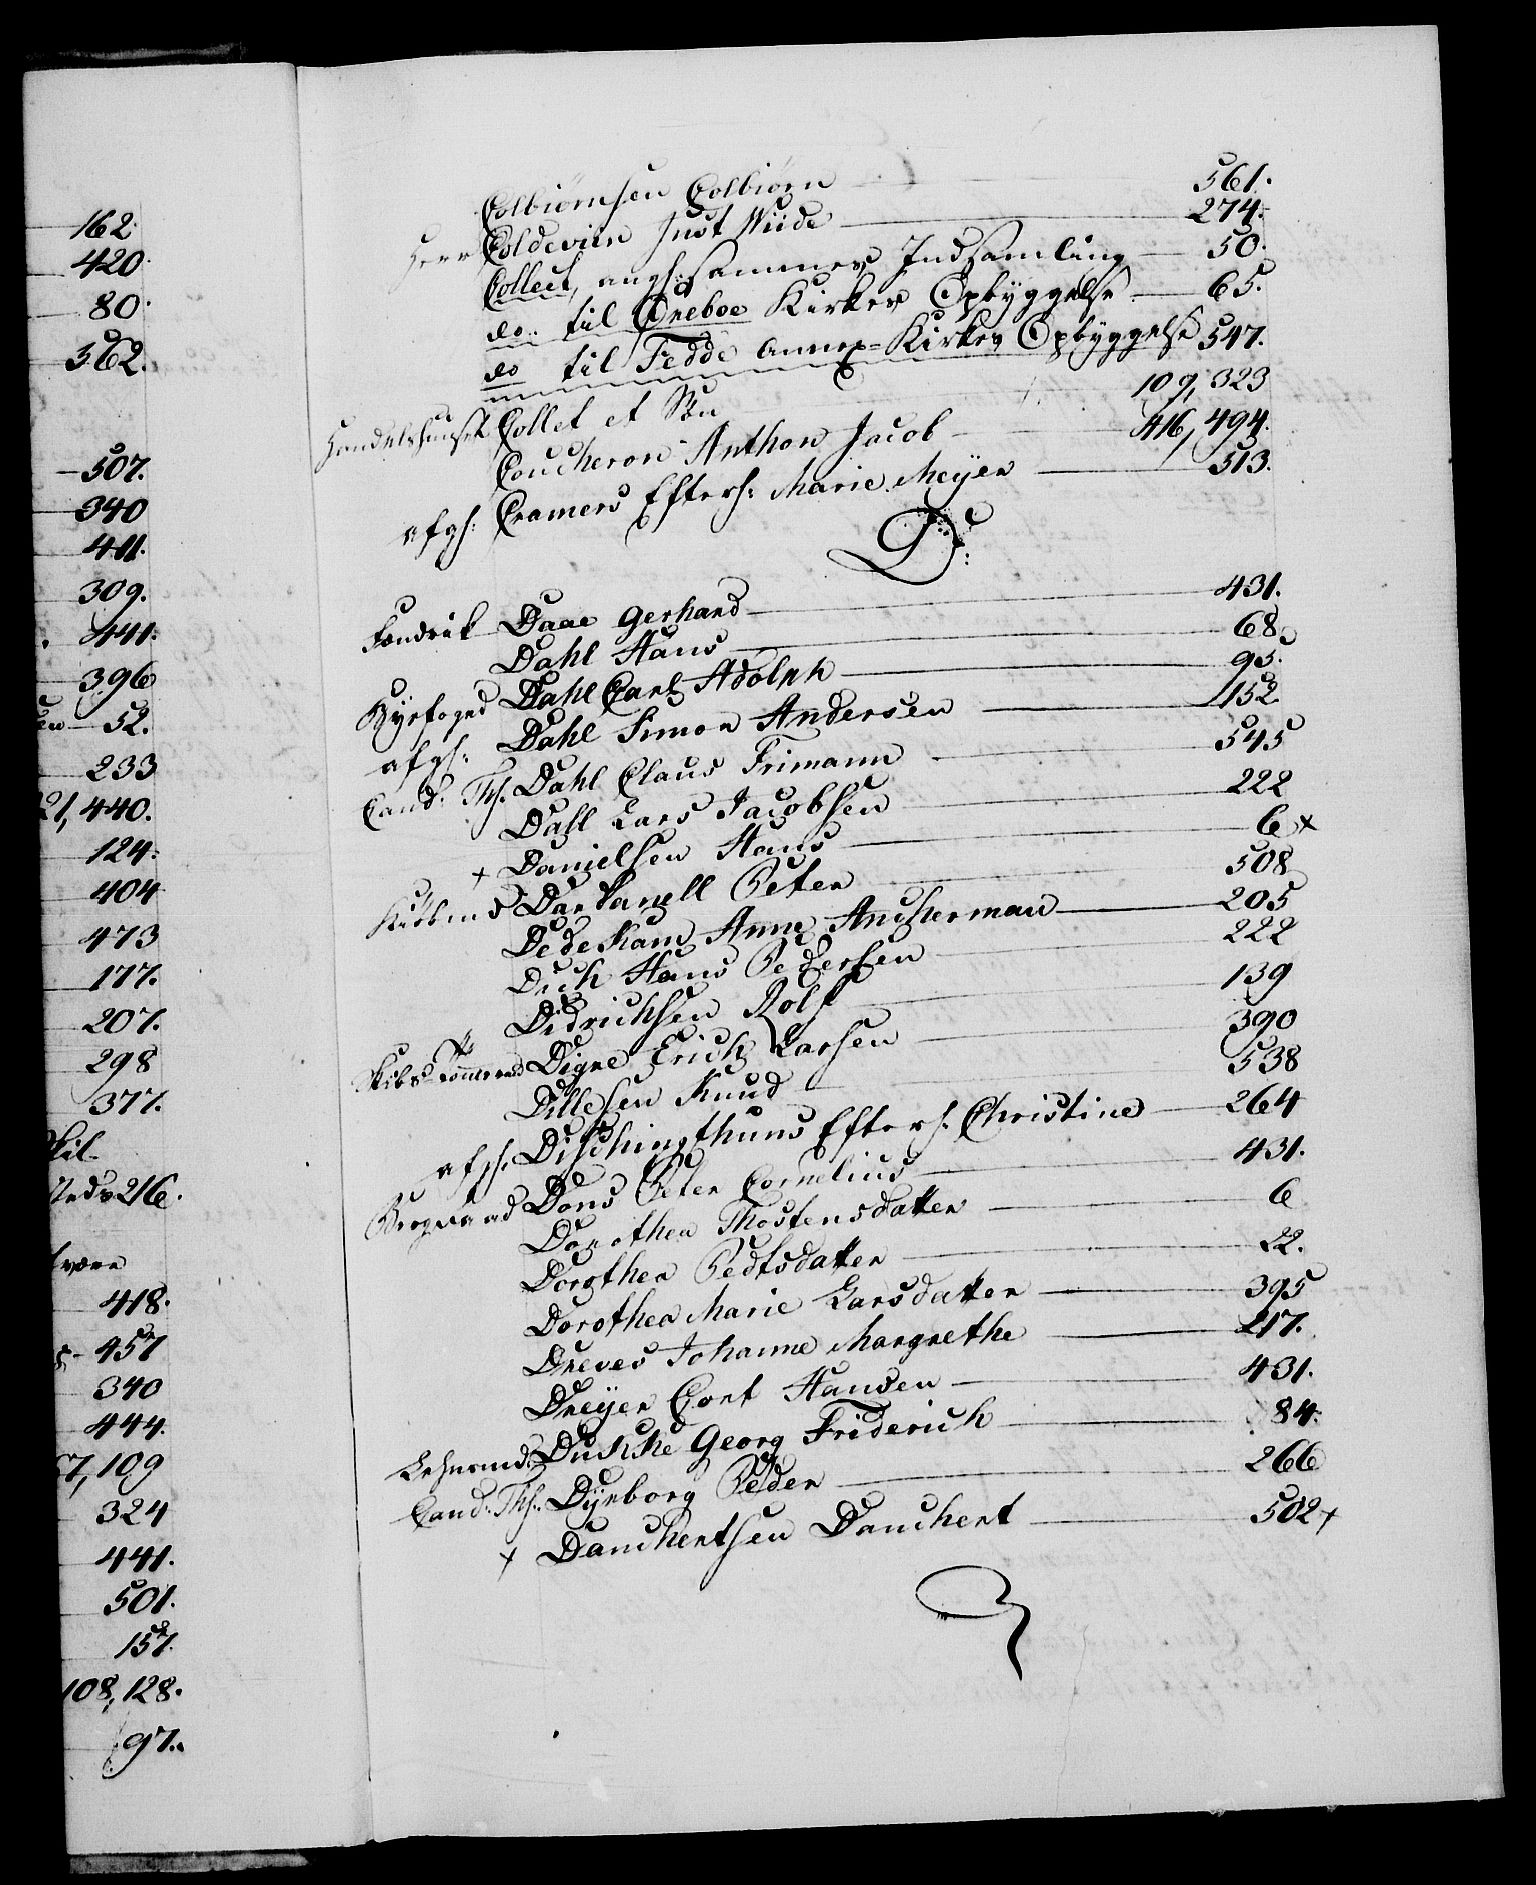 162.
420.
80.
562.
507.
340
411.
309.
441.
396
52.
233
21, 440.
124.
404
473
177.
207.
298
377.
216.
418.
457
340
444.
57, 109
324
441.
501.
157.
108, 128.
97.
Colbiørnsen Colbiørn 561.
Herr Coldevin Just Wiide 274.
Collect, angh: sammes Indsamling 50.
do. til Qneboe Kirkes Opbyggelse 65.
do til Fedde Annex-Kirkes Opbyggelse 547.
Handelshuset Collet et Søn 109, 323
Coucheron Anthon Jacob 416, 494.
afgh: Cramers Efterh: Marie Meyer 513.
D:
Daae Gerhard 431.
Dahl Hans 68.
Byefoged Dahl Carl Adolph 95.
afgh: Dahl Simon Andersen 152
Cand: Th: Dahl Claus Frimann 545
Dahl Lars Jacobsen 222
+ Danielsen Hans 6 x
Kiøbmd Dankanell Peter 508
Dedekam Anne Ancherman 205
Dich Hans Pedersen 222
Didrichsen Rolf 139
Skibs-Tømmermd Digre Erich Larsen 390
Dillesen Knud 538
afgh: Dischingthuns Efterh: Christine 264
Dons Peter Cornelius 431.
Dorothea Thostensdatter 6
Dorothea Pedtsdatter 22.
Dorothea Marie Larsdatter 395
Dreves Johanne Margrethe 217.
Dreyer Cort Hansen 431.
Lehnsmd: Duckke Georg Friderich 84.
Cand: Th: Dyrborg Peder 266
+ Danchertsen Danchert 502 +